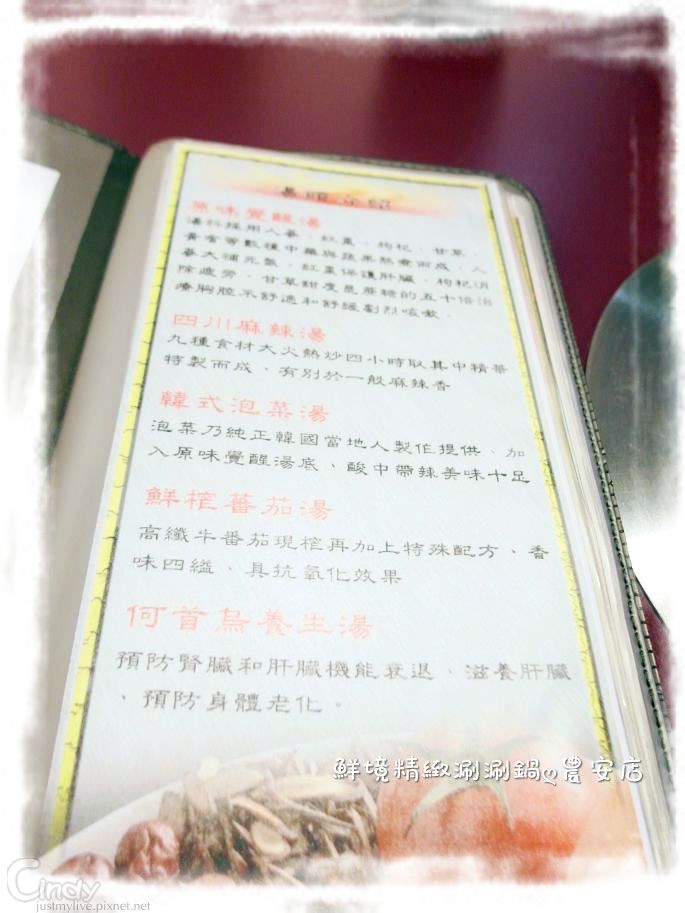 湯頭介紹
原味覺醒湯
湯料採用人蔘、紅棗、枸杞、甘草、
黃耆等數種中藥與蔬果熬煮而成，人
蔘大補元氣，紅棗保護肝臟，枸杞消
除疲勞，甘草甜度是蔗糖的五十倍治
療胸腔不舒適和舒緩劇烈咳嗽．
四川麻辣湯
九種食材大火熱炒四小時取其中精華
特製而成、有別於一般麻辣香
韓式泡菜湯
泡菜乃純正韓國當地人製作提供、加
入原味覺醒湯底、酸中帶辣美味十足
鮮榨蕃茄湯
高纖牛番茄現榨再加上特殊配方、香
味四縊、具抗氧化效果
何首烏養生湯
預防腎臟和肝臟機能衰退、滋養肝臟
、預防身體老化。
鮮境精緻涮涮鍋農安店
Cindy
justmylive.pixnet.net